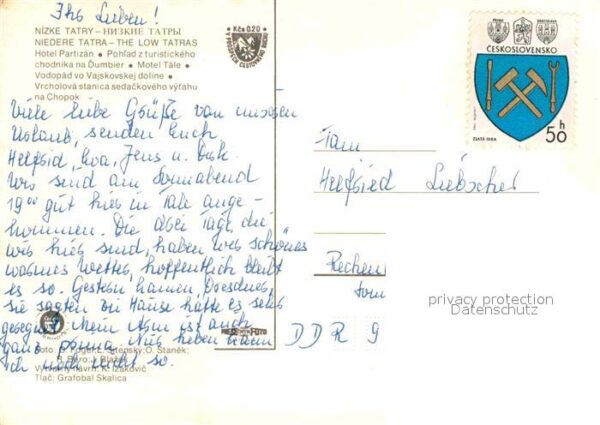 Ihr Lieben!
NÍZKE TATRY — НИЗКИЕ ТАТРЫ
NIEDERE TATRA — THE LOW TATRAS
Hotel Partizán • Pohľad z turistického
chodníka na Ďumbier • Motel Tále •
Vodopád vo Vajskovskej doline •
Vrcholová stanica sedačkového výťahu
na Chopok
Kčs 0,20
Viele liebe Grüße von unserem
Urlaub, senden Euch
Helfried, Eva, Jens u. Dirk.
Wir sind am Sonnabend
19⁰⁰ gut hier in Tale ange-
kommen. Die drei Tage, die
wir hier sind, haben wir schönes
warmes Wetter, hoffentlich bleibt
es so. Gestern kamen Dresdner,
sie sagten zu Hause hätte es sehr
geregnet. Mein Arm ist auch
ganz prima.
ich noch nicht so.
Foto:
Výtvarný návrh: K. Izakovič
Tlač: Grafobal Skalica
ČESKOSLOVENSKO
ZLATÁ IDKA
50 h
Fam
Helfried Liebscher
DDR 9
privacy protection
Datenschutz